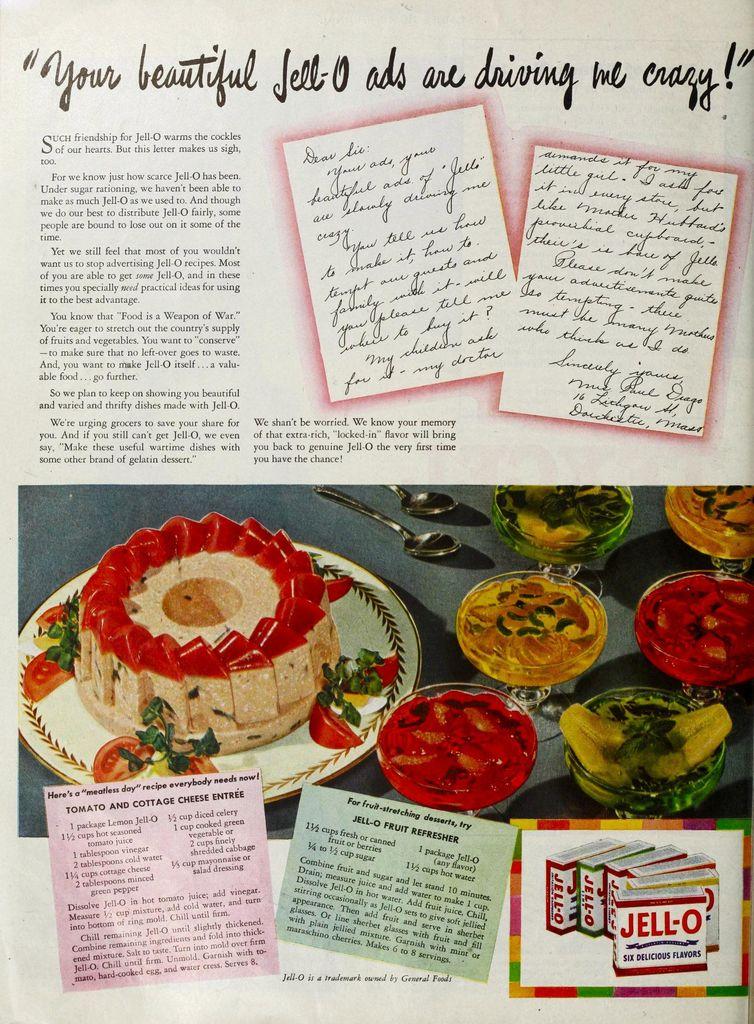 "Your beautiful Jell-O ads are driving me crazy!"
SUCH friendship for Jell-O warms the cockles
of our hearts. But this letter makes us sigh,
too.
For we know just how scarce Jell-O has been.
Under sugar rationing, we haven't been able to
make as much Jell-O as we used to. And though
we do our best to distribute Jell-O fairly, some
people are bound to lose out on it some of the
time.
Yet we still feel that most of you wouldn't
want us to stop advertising Jell-O recipes. Most
of you are able to get some Jell-O, and in these
times you specially need practical ideas for using
it to the best advantage.
You know that "Food is a Weapon of War."
You're eager to stretch out the country's supply
of fruits and vegetables. You want to "conserve"
—to make sure that no left-over goes to waste.
And, you want to make Jell-O itself . . . a valu-
able food . . . go further.
So we plan to keep on showing you beautiful
and varied and thrifty dishes made with Jell-O.
We're urging grocers to save your share for
you. And if you still can't get Jell-O, we even
say, "Make these useful wartime dishes with
some other brand of gelatin dessert."
We shan't be worried. We know your memory
of that extra-rich, "locked-in" flavor will bring
you back to genuine Jell-O the very first time
you have the chance!
Dear Sir:
Your ads, your
beautiful ads of "Jello"
are slowly driving me
crazy.
You tell us how
to make it, how to
tempt our guests and
family with it - will
you please tell me
where to buy it?
My children ask
for it - my doctor
demands it for my
little girl. I ask for
it in every store, but
like Mother Hubbard's
proverbial cupboard -
their's is bare of Jello.
Please don't make
your advertisements quite
so tempting - there
must be many Mothers
who think as I do.
Sincerely yours,
Mrs. Paul Drago
16 Lithgow St,
Dorchester, Mass
Here's a "meatless day" recipe everybody needs now!
TOMATO AND COTTAGE CHEESE ENTRÉE
1 package Lemon Jell-O
1½ cups hot seasoned
tomato juice
1 tablespoon vinegar
2 tablespoons cold water
1¼ cups cottage cheese
2 tablespoons minced
green pepper
½ cup diced celery
1 cup cooked green
vegetable or
2 cups finely
shredded cabbage
⅓ cup mayonnaise or
salad dressing
Dissolve Jell-O in hot tomato juice; add vinegar.
Measure ½ cup mixture, add cold water, and turn
into bottom of ring mold. Chill until firm.
Chill remaining Jell-O until slightly thickened.
Combine remaining ingredients and fold into thick-
ened mixture. Salt to taste. Turn into mold over firm
Jell-O. Chill until firm. Unmold. Garnish with to-
mato, hard-cooked egg, and water cress. Serves 8.
For fruit-stretching desserts, try
JELL-O FRUIT REFRESHER
1½ cups fresh or canned
fruit or berries
¼ to ½ cup sugar
1 package Jell-O
(any flavor)
1½ cups hot water
Combine fruit and sugar and let stand 10 minutes.
Drain; measure juice and add water to make 1 cup.
Dissolve Jell-O in hot water. Add fruit juice. Chill,
stirring occasionally as Jell-O sets to give soft jellied
appearance. Then add fruit and serve in sherbet
glasses. Or line sherbet glasses with fruit and fill
with plain jellied mixture. Garnish with mint or
maraschino cherries. Makes 6 to 8 servings.
Jell-O is a trademark owned by General Foods
JELL-O
JELL-O
JELL-O
SIX DELICIOUS FLAVORS